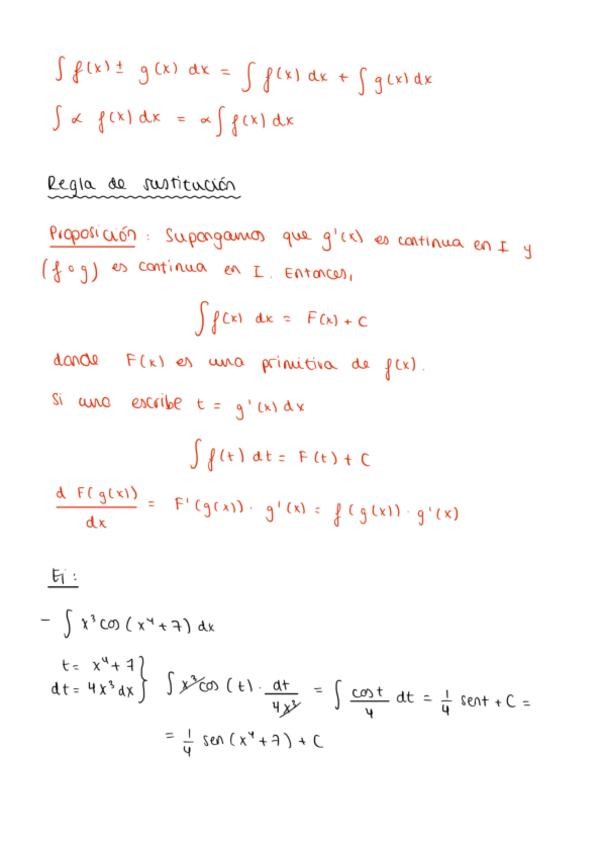 ∫ f(x) ± g(x) dx = ∫ f(x) dx + ∫ g(x) dx
∫ α f(x) dx = α ∫ f(x) dx
Regla de sustitución
Proposición: Supongamos que g'(x) es continua en I y
(f∘g) es continua en I. Entonces,
∫ f(x) dx = F(x) + C
donde F(x) es una primitiva de f(x).
Si uno escribe t = g'(x) dx
∫ f(t) dt = F(t) + C
d F(g(x))/dx = F'(g(x)) · g'(x) = f(g(x)) · g'(x)
Ej:
- ∫ x³ cos(x⁴ + 7) dx
t = x⁴ + 7
dt = 4x³ dx } ∫ x³ cos(t) · dt/4x³ = ∫ cos t/4 dt = 1/4 sen t + C =
= 1/4 sen(x⁴ + 7) + C